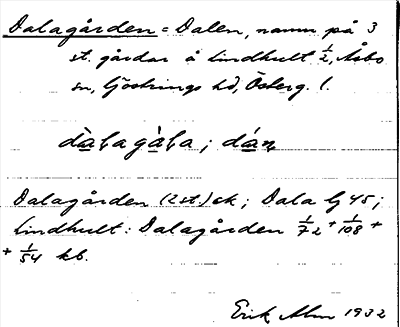 Dalagården = Dalen, namn på 3
st. gårdar å Lindhult 1/2, Åsbo
sn, Göstrings hd, Österg. l.
dàlagàla; dán
Dalagården (2 st) ek; Dala G 45;
Lindhult: Dalagården 1/72 + 1/108 +
+ 1/54 kb.
Erik Alm 1932